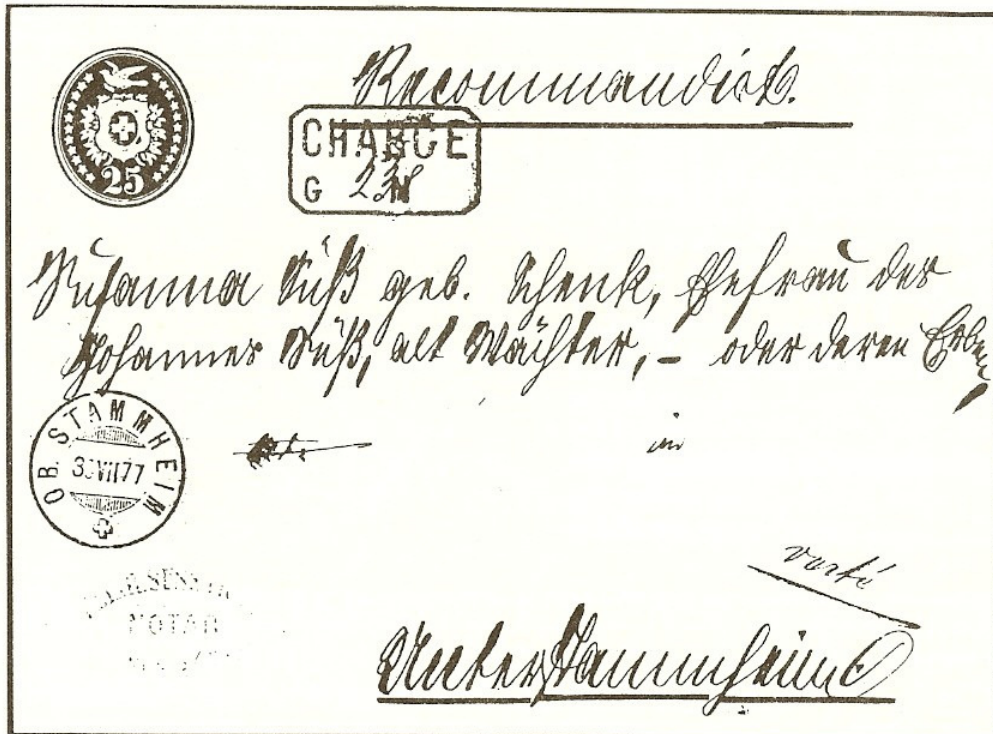 Recommandirt.
25
CHARGE
G 238 N
Susanna Süß geb. Schenk, Ehefrau des
Johannes Süß, alt Wächter, – oder deren Erben,
in
OB. STAMMHEIM
30 VII 77
NOTAR
Unterstammheim